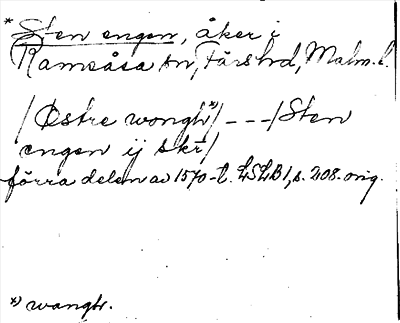 * Sten engen, åker i
Ramsåsa sn, Färs hd, Malm. l.
/Østre wongh*)/ - - - /Sten
engen ij skr/
förra delen av 1570-t. LSLB1, s. 208. orig.
*) wangh.